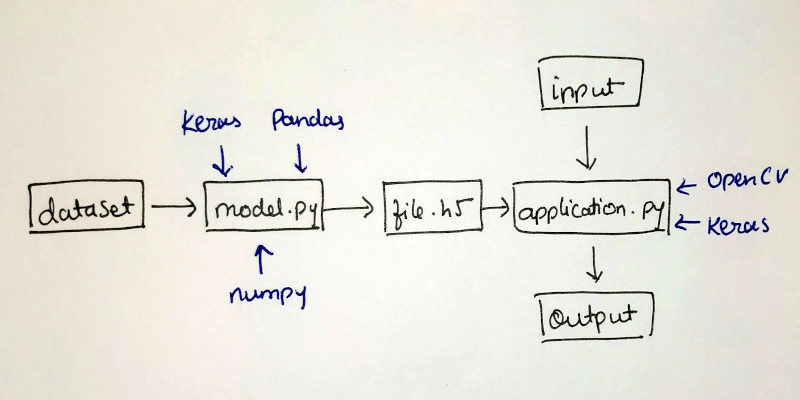 input
Keras
Pandas
dataset
model.py
file.h5
application.py
OpenCV
Keras
numpy
output